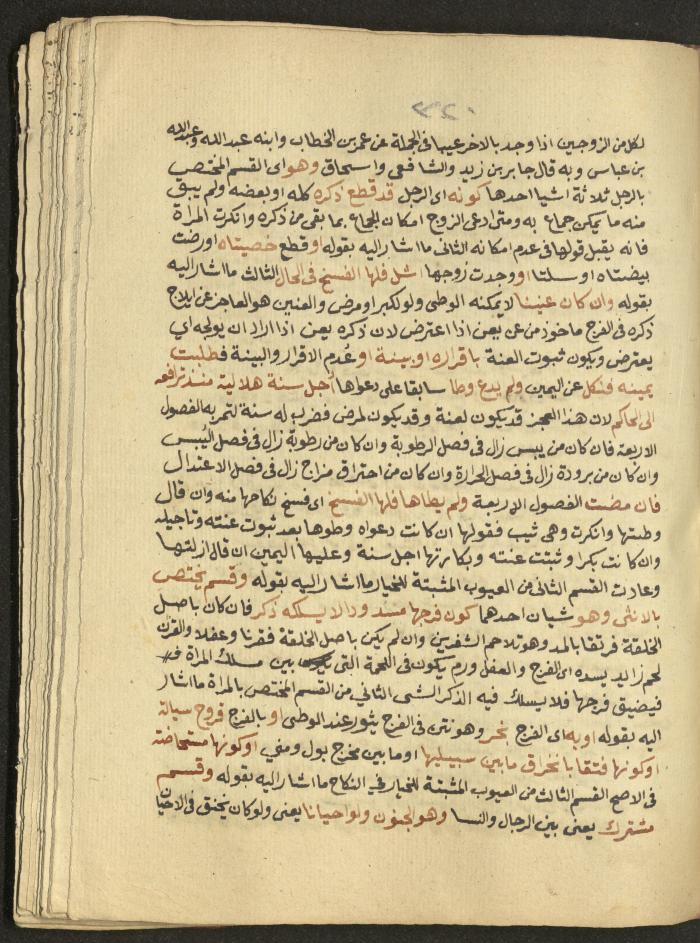 ٣٢٠
لكل من الزوجين اذا وجد بالاخر عيبا فى الجملة عن عمر بن الخطاب وابنه عبدالله وعبدالله
بن عباس وبه قال جابر بن زيد والشافعى واسحاق وهو اى القسم المختص
بالرجل ثلاثة اشيا احدها كونه اى الرجل قد قطع ذكره كله او بعضه ولم يبق
منه ما يمكن جماع به ومتى ادعى الزوج امكان الجماع بما بقى من ذكره وانكرت المراة
فانه يقبل قولها فى عدم امكانه الثانى ما اشار اليه بقوله او قطع خصيتاه او رضت
بيضتاه او سلتا او وجدت زوجها اشل فلها الفسخ فى الحال الثالث ما اشار اليه
بقوله وان كان عنينا لا يمكنه الوطى ولو لكبر او مرض والعنين هو العاجز عن ايلاج
ذكره فى الفرج ماخوذ من عن يعن اذا اعترض لان ذكره يعن اذا اراد ان يولجه اى
يعترض ويكون ثبوت العنة باقراره او ببينة او عُدم الاقرار والبينة فطلبت
يمينه فنكل عن اليمين ولم يدع وطا سابقا على دعواها أجل سنة هلالية منذ ترافعه
الى الحاكم لان هذا العجز قد يكون لعنة وقد يكون لمرض فضرب له سنة لتمر به الفصول
الاربعة فان كان من يبس زال فى فصل الرطوبة وان كان من رطوبة زال فى فصل اليُبس
وان كان من برودة زال فى فصل الحرارة وان كان من احتراق مزاج زال فى فصل الاعتدال
فان مضت الفصول الاربعة ولم يطاها فلها الفسخ اى فسخ نكاحها منه وان قال
وطئتها وانكرت وهى ثيب فقولها ان كانت دعواه وطوها بعد ثبوت عنته وتاجيله
وان كانت بكرا وثبتت عنته وبكارتها اجل سنة وعليها اليمين ان قال ازلتها
وعادت القسم الثانى من العيوب المثبتة للخيار ما اشار اليه بقوله وقسم يختص
بالانثى وهو شيان احدهما كون فرجها منسدودا لا يسلكه ذكر فان كان باصل
الخلقة فرتقا بالمد وهو تلاحم الشفرين وان لم يكن باصل الخلقة فقرنا وعفلا والقرن
لحم زايد يسده اى الفرج والعفل ورم يكون فى اللحمة التى بين مسلك المراة
فيضيق فرجها فلا يسلك فيه الذكر الشى الثانى من القسم المختص بالمراة ما اشار
اليه بقوله او به اى الفرج بخر وهو نتن فى الفرج يثور عند الوطى او بالفرج قروح سيالة
او كونها فتقا بانخراق ما بين سبيليها او ما بين مخرج بول ومنى او كونها مستحاضة
فى الاصح القسم الثالث من العيوب المثبتة للخيار فى النكاح ما اشار اليه بقوله وقسم
مشترك يعنى بين الرجال والنسا وهو الجنون ولو احيانا يعنى ولو كان يخنق فى الاحيان